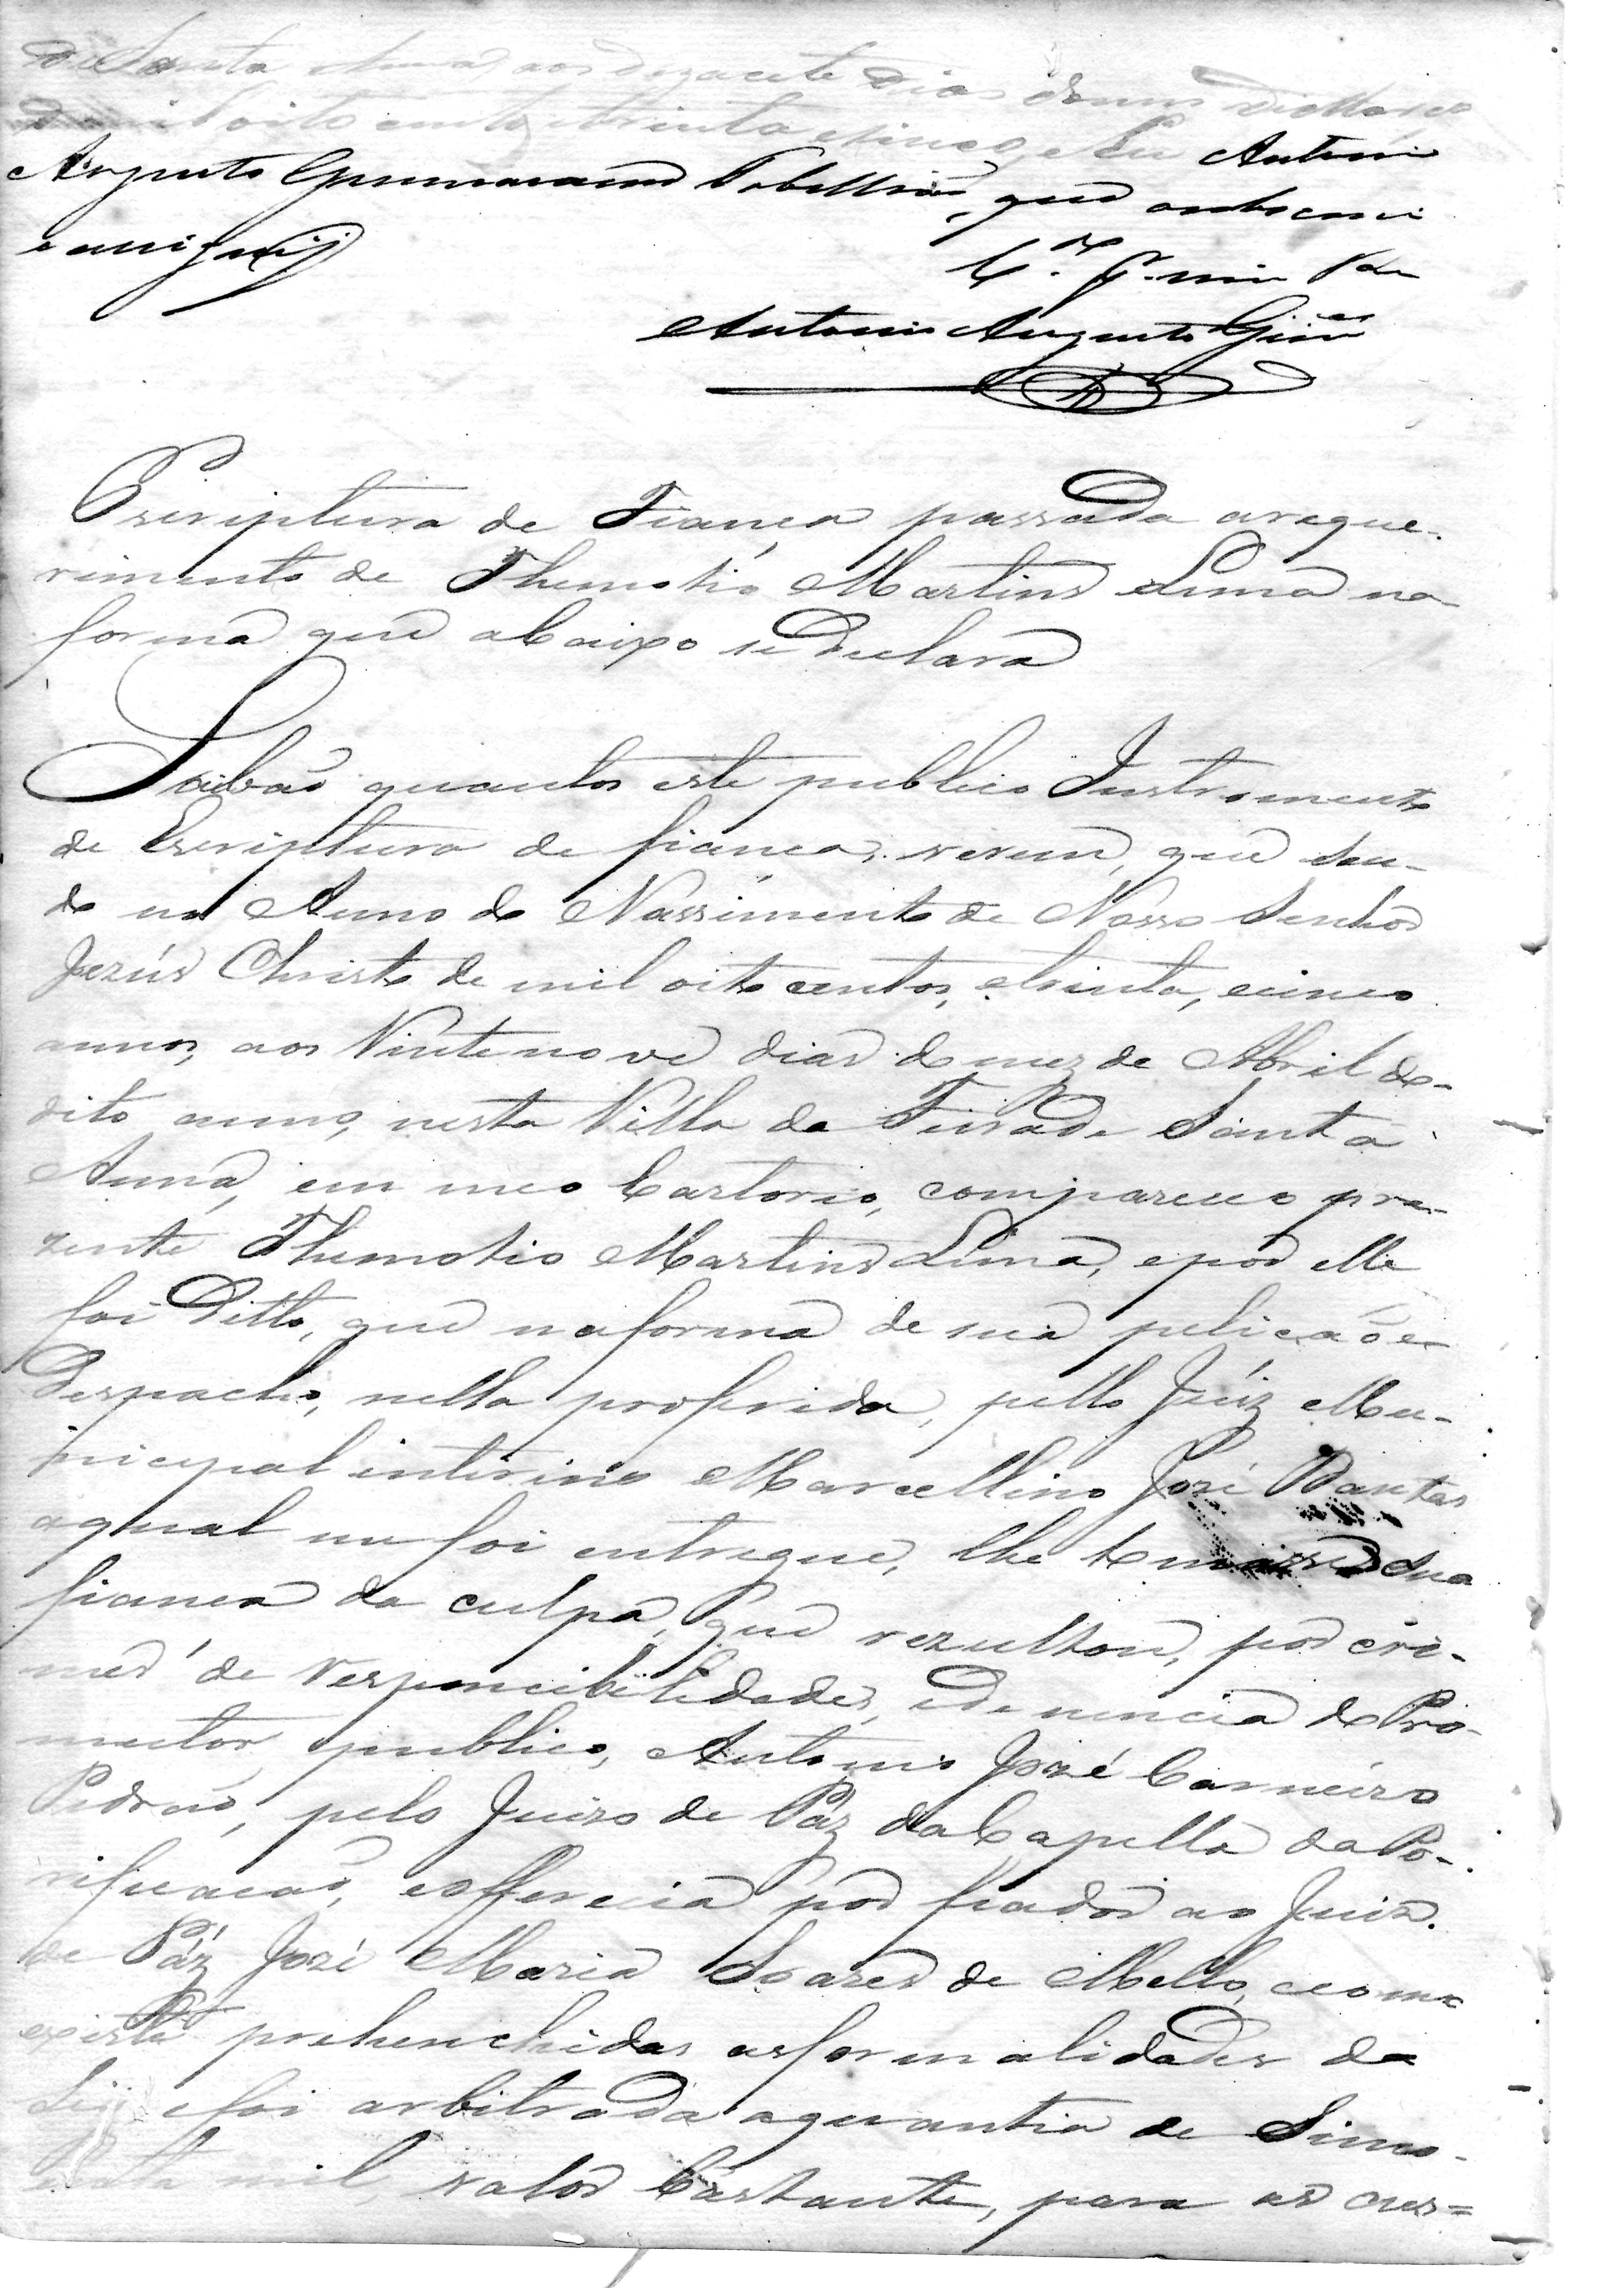 de Santa Anna, aos dezacete dias do mes de Março
de mil oito centos e trinta e sinco, e Eu Antonio
Augusto Guimaraens Tabelliaõ, que o sobscrevi
e assignei
Antonio Augusto Guim.es
Escriptura de Fiança passada a reque-
rimento de Themotio Martins Lima na
forma que abaixo se declara
Saibaõ quantos este publico Instromento
de Escriptura de fiança, virem, que sen-
do no Anno do Nassimento de Nosso Senhor
Jezús Christo de mil oito centos, e trinta, e cinco
annos, aos Vinte nove dias do mez de Abril do
dito anno, nesta Villa da Feira de Santa
Anna, em meo Cartorio, compareceo pre-
zente Themotio Martins Lima, e por elle
foi Ditto, que na forma de sua petiçaõ e
Despacho, nella proferido, pello Juiz Mu-
nicipal interino Marcellino José Dantas
a qual me foi entregue, lhe tomasse sua
fiança da culpa, que rezultou, por cri-
mes de responcibilidades, e denuncia do Pro-
mutor publico, Antonio José Carneiro
Pedraõ, pelo Juizo de Paz da Capella da Po-
rificaçaõ, e offerecia por fiador ao Juiz
de Páz José Maria Soares de Mello, e como
existe prehenchidas as formalidades da
Lei, e foi arbitrada a quantia de Sinco-
enta mil, valor bastante, para as cus=